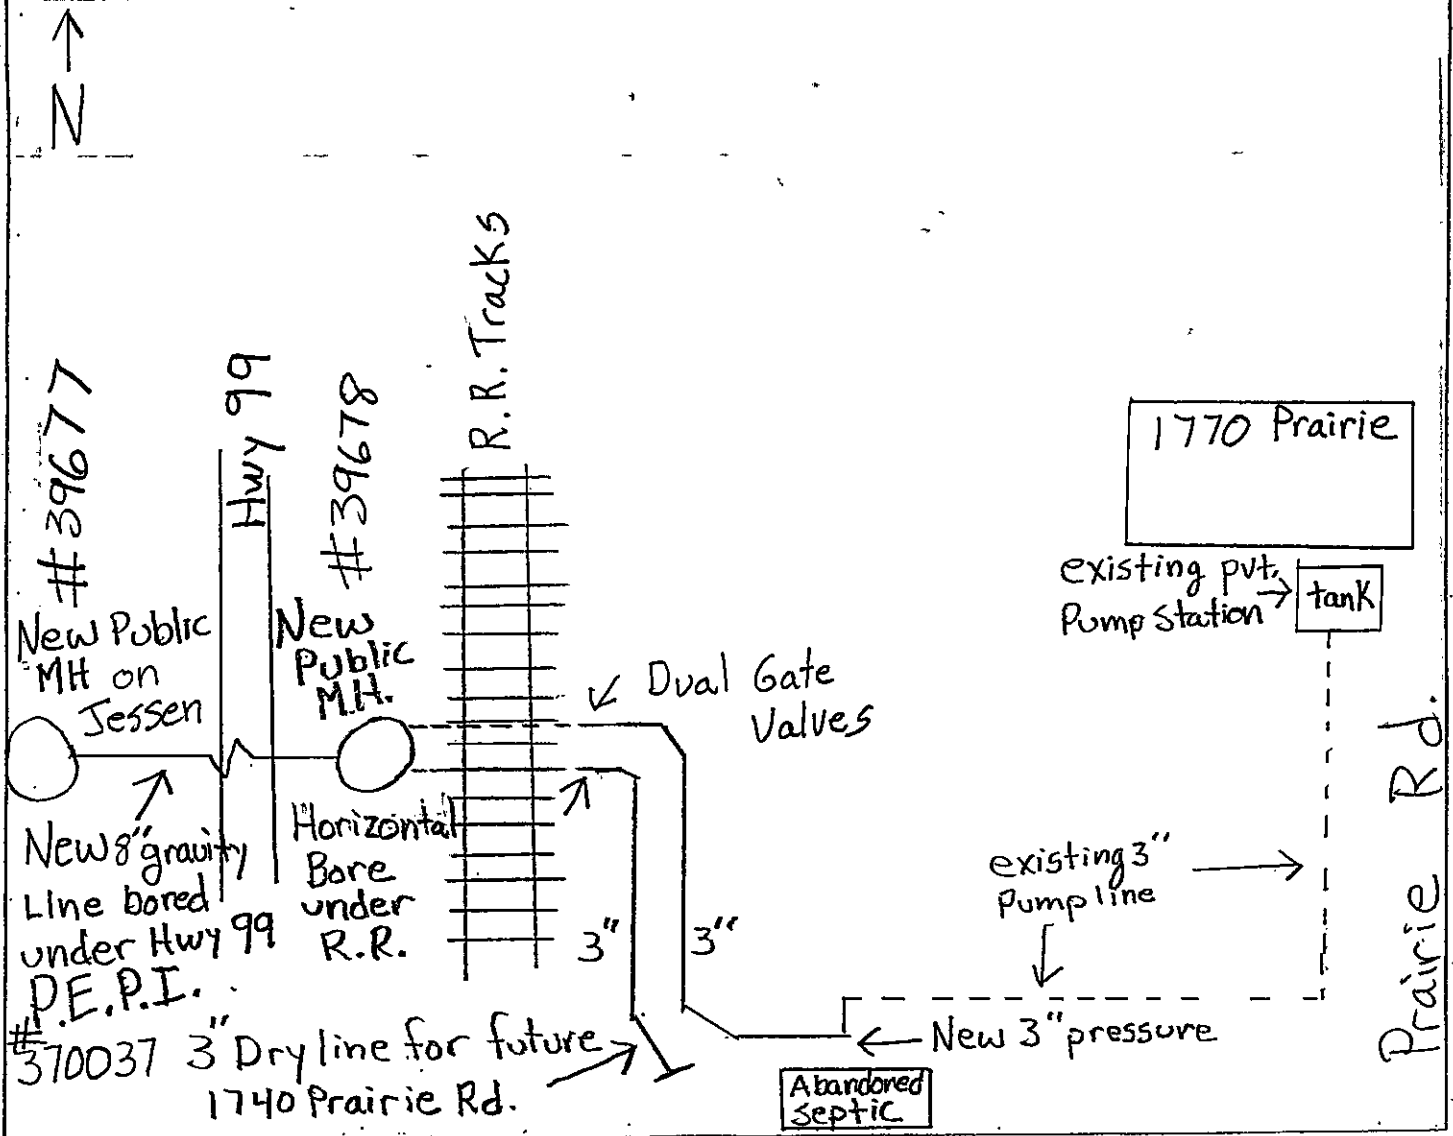 N
R.R. Tracks
#39677
Hwy 99
#39678
1770 Prairie
existing pvt.
Pump station
tank
New Public
MH on
Jessen
New
Public
M.H.
Dual Gate
Valves
New 8" gravity
Line bored
under Hwy 99
P.E.P.I.
#370037
Horizontal
Bore
under
R.R.
3"
3"
existing 3"
Pump line
Prairie Rd.
New 3" pressure
3" Dry line for future
1740 Prairie Rd.
Abandored
septic